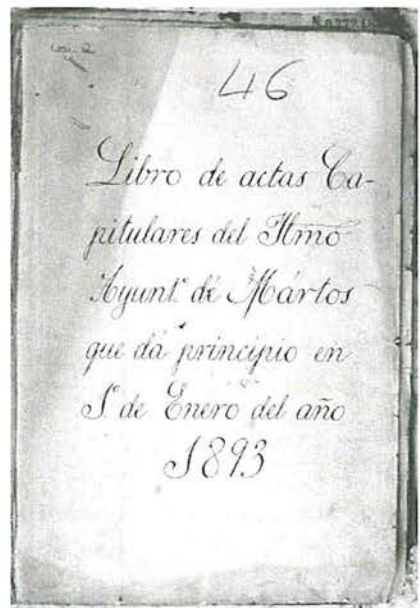 46
Libro de actas Ca-
pitulares del Ilmo
Ayunt.º de Mártos
que dá principio en
1º de Enero del año
1893